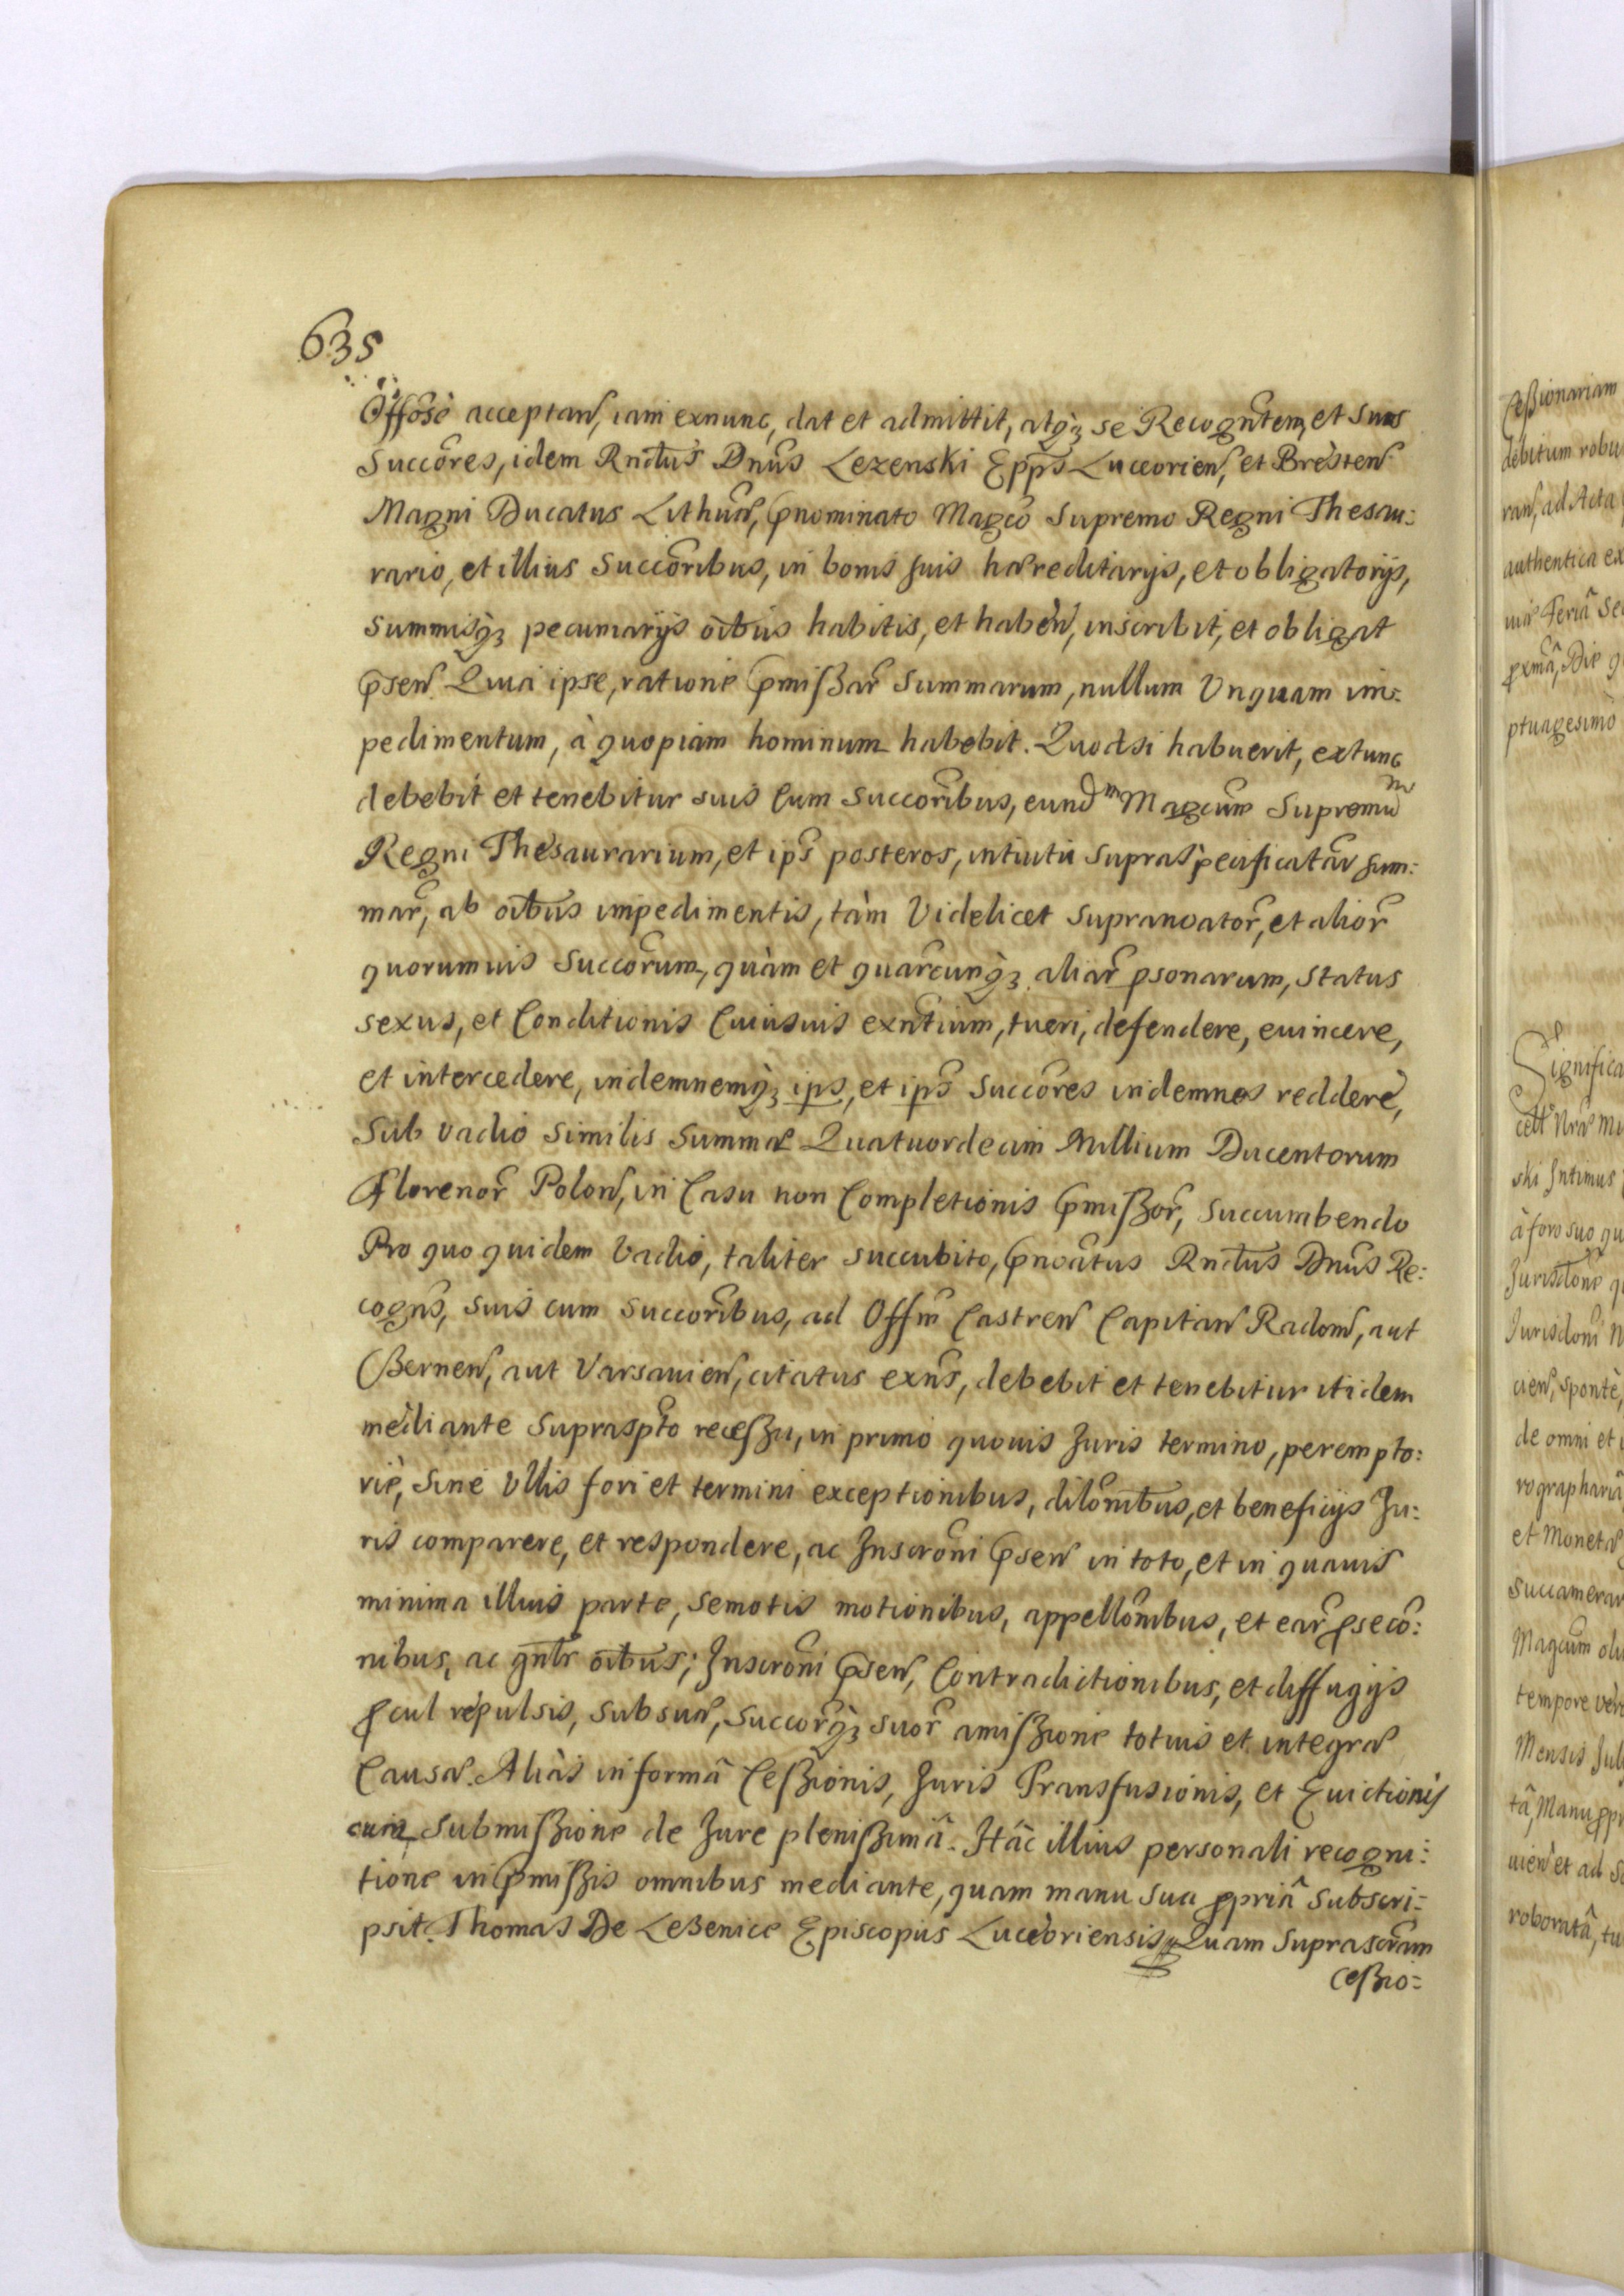 635
Offosè acceptan, iam exnunc, dat et admittit, atq̀ʒ se Recogñtem, et suos
Succõres, idem Rnd̃us Dñus Lezenski Epp̃s Luceorien, et Bresten
Magni Ducatus Lithuã, p̃nominato Magc̃o Supremo Regni Thesau:
rario, et illius Succõribus, in bonis suis hæreditarijs, et obligatorijs,
summisq̀ʒ pecuniarijs oĩbus habitis, et haben, inscribit, et obligat
p̃sen. Quia ipse, ratione p̃mißar̃ Summarum, nullum Unquam im:
pedimentum, à quopiam hominum habebit. Quodsi habuerit, extunc
debebit et tenebitur suis Cum Succoribus, eundᵐ Magcum Supremuᵐ
Regni Thesaurarium, et ips̃ posteros, intuitu supraspecificatar̃ sum:
mar̃, ab oĩbus impedimentis, tàm Videlicet supranoator̃, et alior̃
quorumuis Succorum, quàm et quarcunq̀ʒ aliar̃ psonarum, status
sexus, et Conditionis Cuiusuis exñtium, tueri, defendere, euincere,
et intercedere, indemnemq̀ʒ ips, et ips̃ Succõres indemnes reddere,
Sub vadio similis Summæ Quatuordecim Millium Ducentorum
Florenor̃ Polon, in Casu non Completionis p̃mißor̃, succumbendo
Pro quo quidem Vadio, taliter succubito, p̃noãtus Rnd̃us Dñus Re:
cogñs, suis cum Succoribus, ad Offm Castren Capitan Radom, aut
Bernen, aut Varsauien, citatus exñs, debebit et tenebitur itidem
mediante supraspt̃o receßu, in primo quouis Juris termino, perempto:
riè, sine Ullis fori et termini exceptionibus, dilõnibus, et beneficijs Ju:
ris comparere, et respondere, ac Inscrõni p̃sen in toto, et in quauis
minima illius parte, semotis motionibus, appellõnibus, et ear̃ psecõ:
nibus, ac gñlr oĩbus; Inscrõni p̃sen, Contradictionibus, et diffugijs
pcul repulsis, sub suæ, Succorq̀ʒ suor̃ amißione totius et integræ
Causæ. Aliàs in formâ Ceßionis, Juris Transfusionis, et Euictionis
cum Submißione de Jure plenißimâ. Hâc illius personali recogni:
tione in p̃mißis omnibus mediante, quam manu sua ppriâ subscri:
psit. Thomas De Lezenice Episcopus Luceoriensis. Quam suprascr̃am
Ceßio: